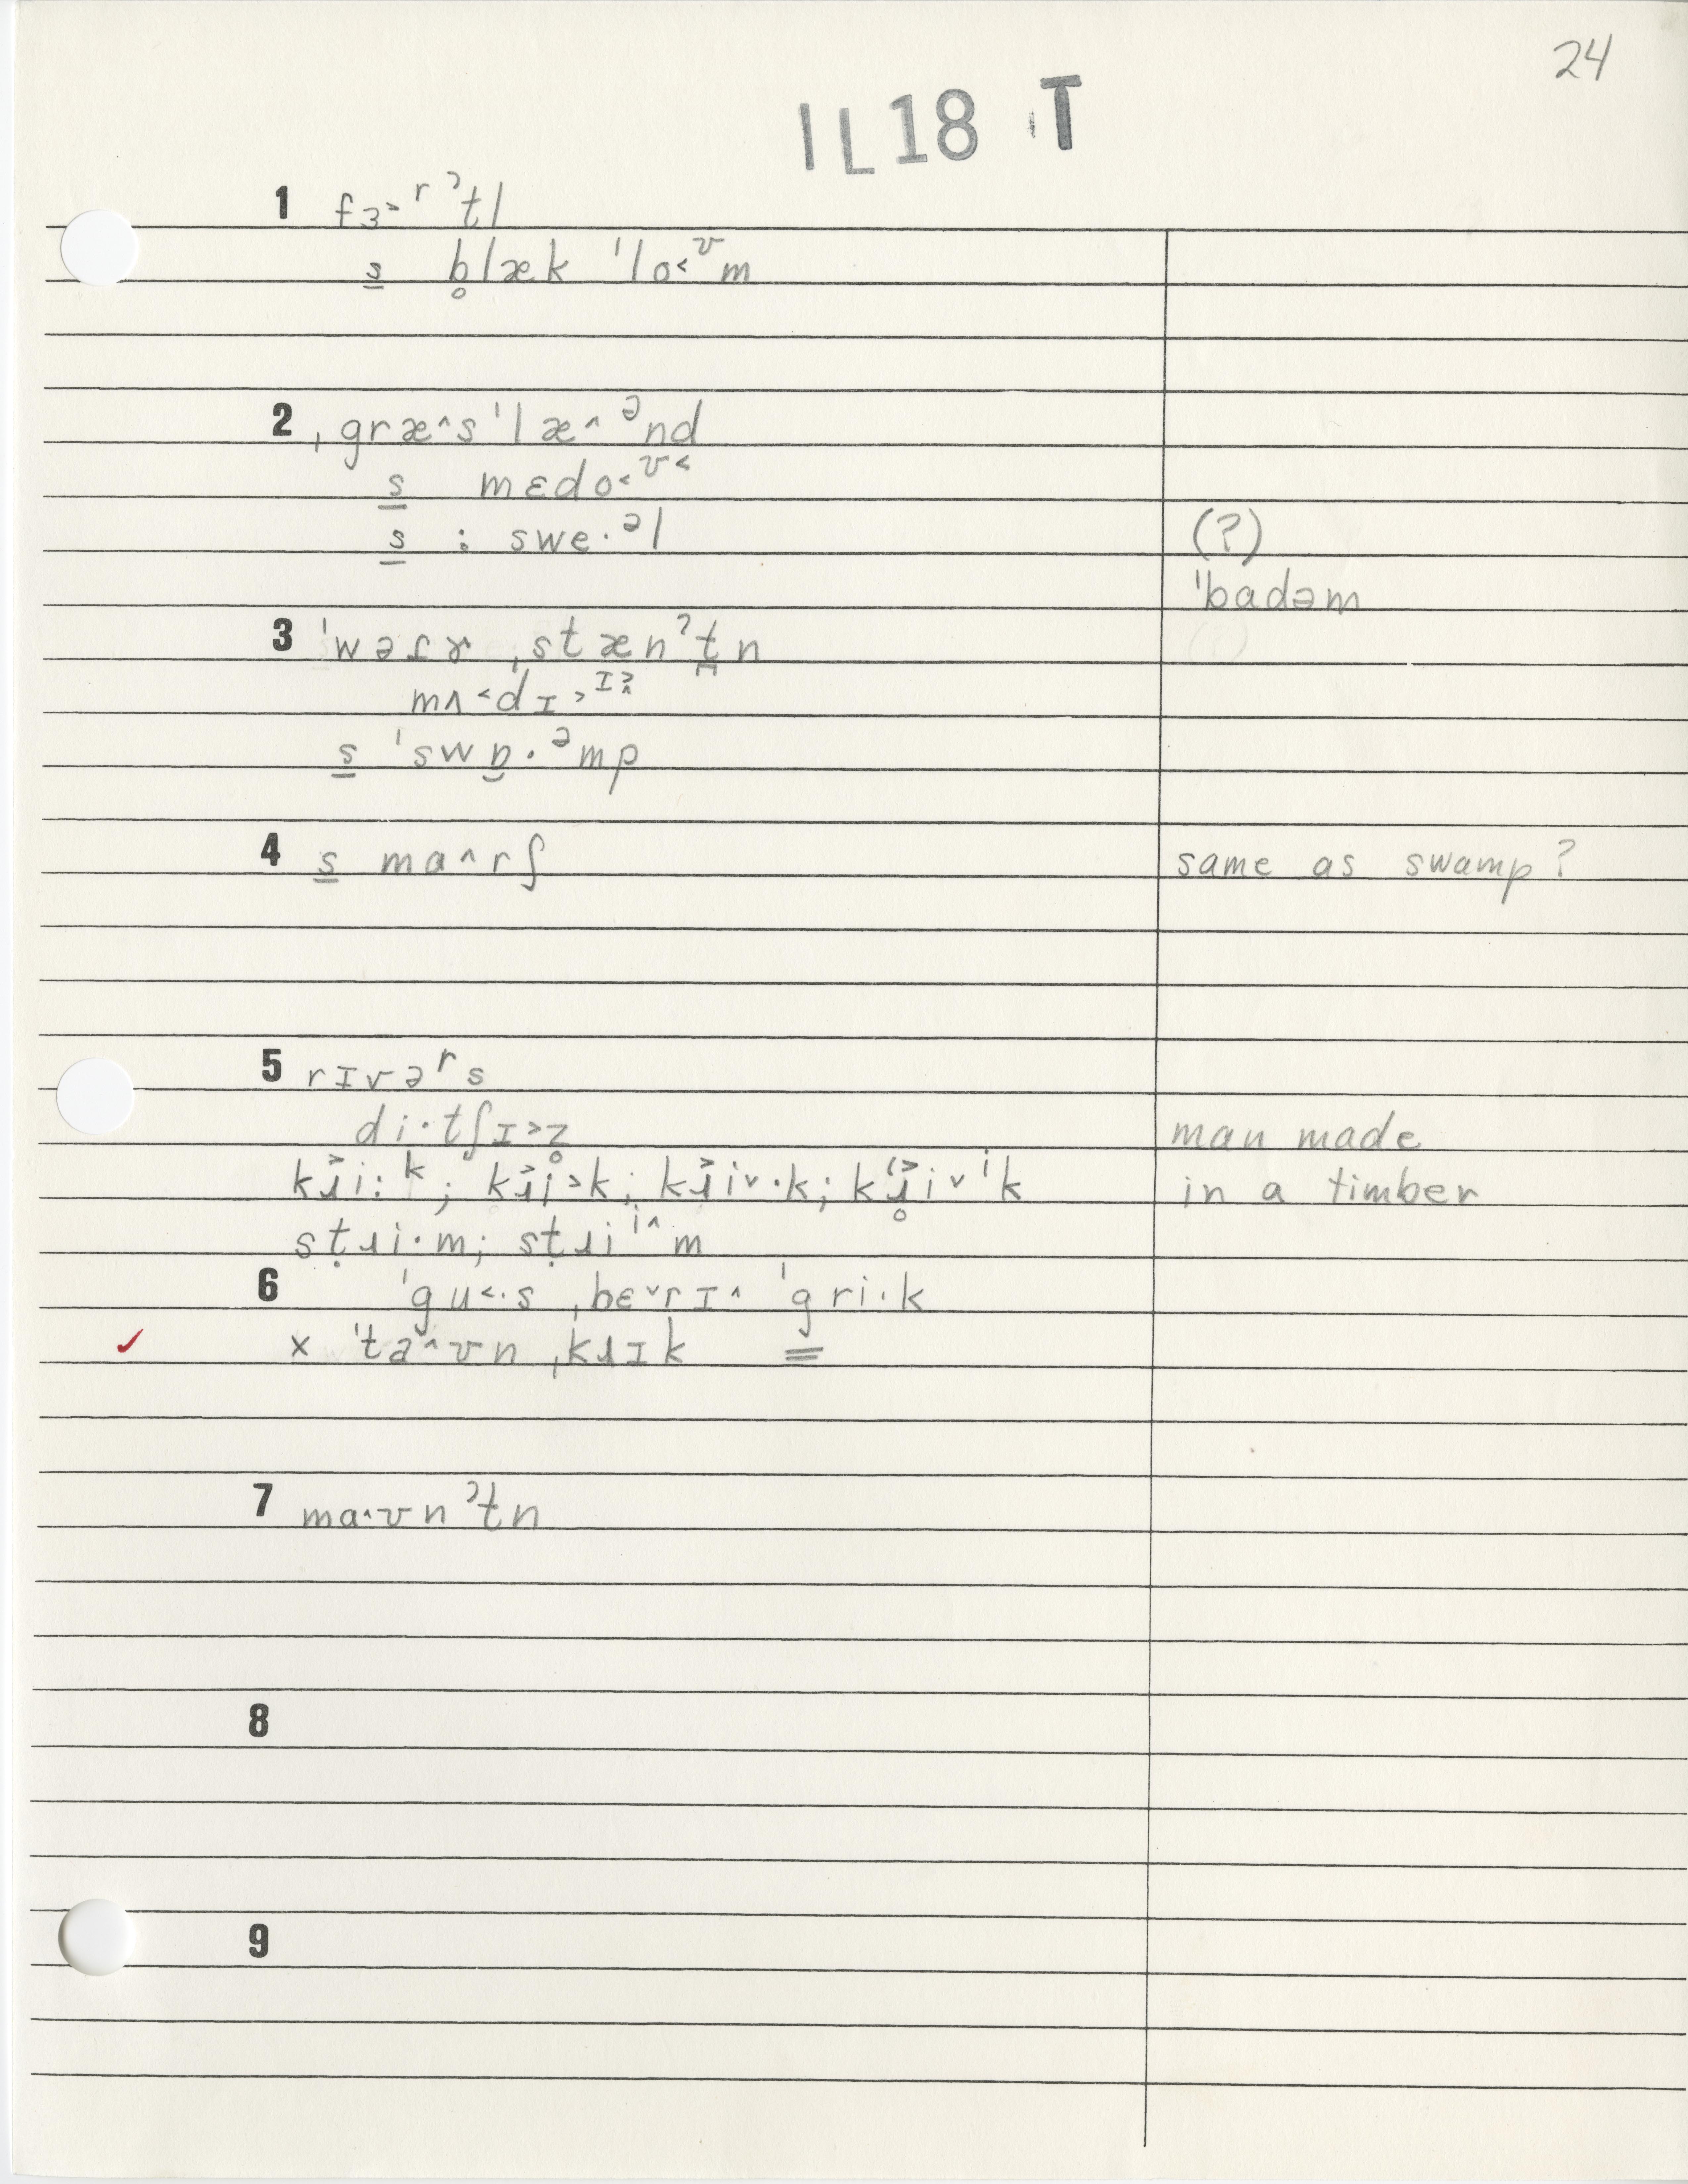 24
IL18 T
1 fɜ˃ʳ ˀtl
s b̥læk ˈlo˂ᶷm
2 ˌgræ^sˈlæ^ᵊnd
s mɛdo˂ᶷ˂
s : swe·ᵊl (?)
ˈbadəm
3 ˈwəɾɚ ˌstænˀt̪n
mʌ˂dɪ˃ᶦ
s ˈswɒ̜·ᵊmp
4 s ma^rʃ same as swamp?
5 rɪvəʳs
di·tʃɪ˃z̥ man made
kɹ̌i:ᵏ; kɹ̌i˃k; kɹ̌i˅·k; kɹ̥i˅ⁱk in a timber
sṭɹi·m; sṭɹiⁱ^m
6 ˈgu˂·s ˌbɛ˅rɪ^ ˈgri·k
✓ x ˈta^ʊn ˌkɹɪk =
7 ma·ʊnˀtn
8
9